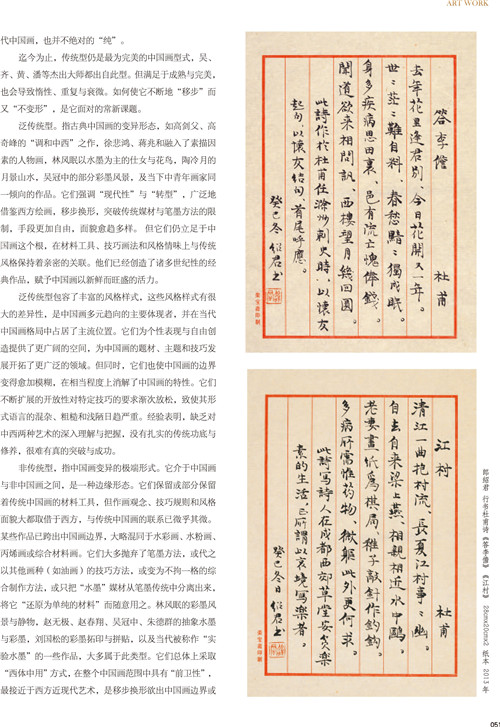 ART WORK
代中国画，也并不绝对的“纯”。
迄今为止，传统型仍是最为完美的中国画型式，吴、
齐、黄、潘等杰出大师都出自此型。但满足于成熟与完美，
也会导致惰性、重复与衰微。如何使它不断地“移步”而
又“不变形”，是它面对的常新课题。
泛传统型。指古典中国画的变异形态，如高剑父、高
奇峰的“调和中西”之作，徐悲鸿、蒋兆和融入了素描因
素的人物画，林风眠以水墨为主的仕女与花鸟，陶冷月的
月景山水，吴冠中的部分彩墨风景，及当下中青年画家同
一倾向的作品。它们强调“现代性”与“转型”，广泛地
借鉴西方绘画，移步换形，突破传统媒材与笔墨方法的限
制，手段更加自由，面貌愈趋多样。但它们仍立足于中
国画这个根，在材料工具、技巧画法和风格情味上与传统
风格保持着亲密的关联。他们已经创造了诸多世纪性的经
典作品，赋予中国画以新鲜而旺盛的活力。
泛传统型包容了丰富的风格样式，这些风格样式有很
大的差异性，是中国画多元趋向的主要体现者，并在当代
中国画格局中占居了主流位置。它们为个性表现与自由创
造提供了更广阔的空间，为中国画的题材、主题和技巧发
展开拓了更广泛的领域。但同时，它们也使中国画的边界
变得愈加模糊，在相当程度上消解了中国画的特性。它们
不断扩展的开放性对特定技巧的要求渐次放松，致使其形
式语言的混杂、粗糙和浅陋日趋严重。经验表明，缺乏对
中西两种艺术的深入理解与把握，没有扎实的传统功底与
修养，很难有真的突破与成功。
非传统型，指中国画变异的极端形式。它介于中国画
与非中国画之间，是一种边缘形态。它们保留或部分保留
着传统中国画的材料工具，但作画观念、技巧规则和风格
面貌大都取借于西方，与传统中国画的联系已微乎其微。
某些作品已跨出中国画边界，大略混同于水彩画、水粉画、
丙烯画或综合材料画。它们大多抛弃了笔墨方法，或代之
以其他画种（如油画）的技巧方法，或变为不拘一格的综
合制作方法，或只把“水墨”媒材从笔墨传统中分离出来，
将它“还原为单纯的材料”而随意用之。林风眠的彩墨风
景与静物，赵无极、赵春翔、吴冠中、朱德群的抽象水墨
与彩墨，刘国松的彩墨拓印与拼贴，以及当代被称作“实
验水墨”的一些作品，大多属于此类型。它们总体上采取
“西体中用”方式，在整个中国画范围中具有“前卫性”，
最接近于西方近现代艺术，是移步换形欲出中国画边界或
答李儋 杜甫
去年花里逢君别，今日花開又一年。
世〻茫〻難自料，春愁黯〻獨成眠。
身多疾病思田里，邑有流亡愧俸錢。
聞道欲来相問訊，西楼望月幾回圆。
此詩作於杜甫任滁州刺史時，以懷友
起句，以懷友结句，首尾呼應。
癸巳冬 绍君书
江村 杜甫
清江一曲抱村流，長夏江村事〻幽。
自去自来梁上燕，相親相近水中鷗。
老妻畫纸為棋局，稚子敲針作釣鈎。
多病所需惟药物，微軀此外更何求。
此詩寫詩人在成都西郊草堂安貧樂
素的生活，正所謂以哀境寫樂者。
癸巳冬日 绍君书
郎绍君 行书杜甫诗《答李儋》《江村》 26cm×20cm×2 纸本 2013年